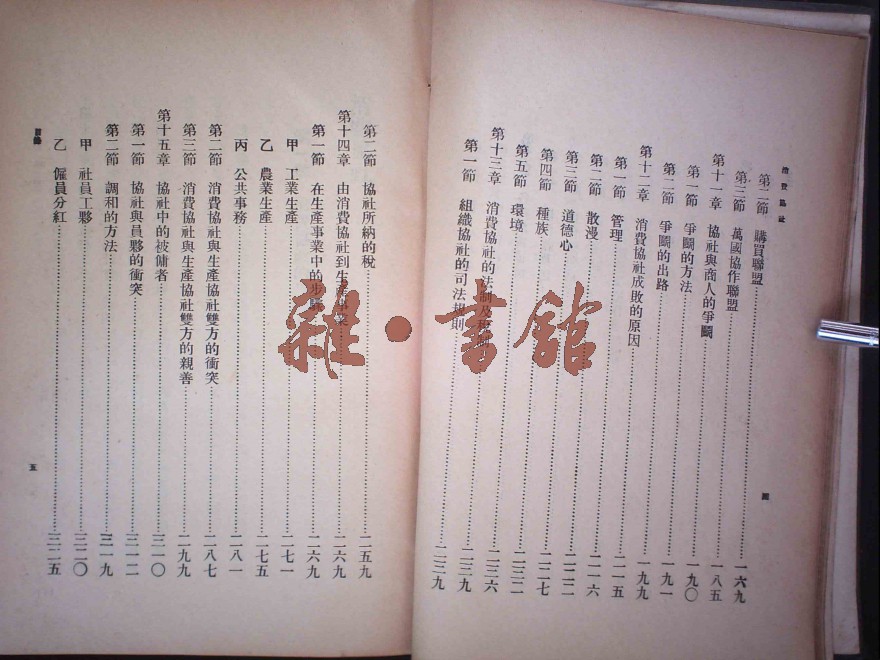 消費協社
第二節 購買聯盟……一六九
第三節 萬國協作聯盟……一八五
第十一章 協社與商人的爭鬭……一九〇
第一節 爭鬭的方法……一九一
第二節 爭鬭的出路……一九九
第十二章 消費協社成敗的原因……二一五
第一節 管理……二一六
第二節 散漫……二二二
第三節 道德心……二二七
第四節 種族……二三二
第五節 環境……二三六
第十三章 消費協社的法制及……二三九
第一節 組織協社的司法規則……二三九
四
第二節 協社所納的稅……二五九
第十四章 由消費協社到生產事業……二六九
第一節 在生產事業中的步驟……二六九
甲 工業生產……二七一
乙 農業生產……二七五
丙 公共事務……二八一
第二節 消費協社與生產協社雙方的衝突……二八七
第三節 消費協社與生產協社雙方的親善……二九九
第十五章 協社中的被傭者……三一〇
第一節 協社與員夥的衝突……三一二
第二節 調和的方法……三一九
甲 社員工夥……三二〇
乙 僱員分紅……三二五
目錄
五
雜·書館